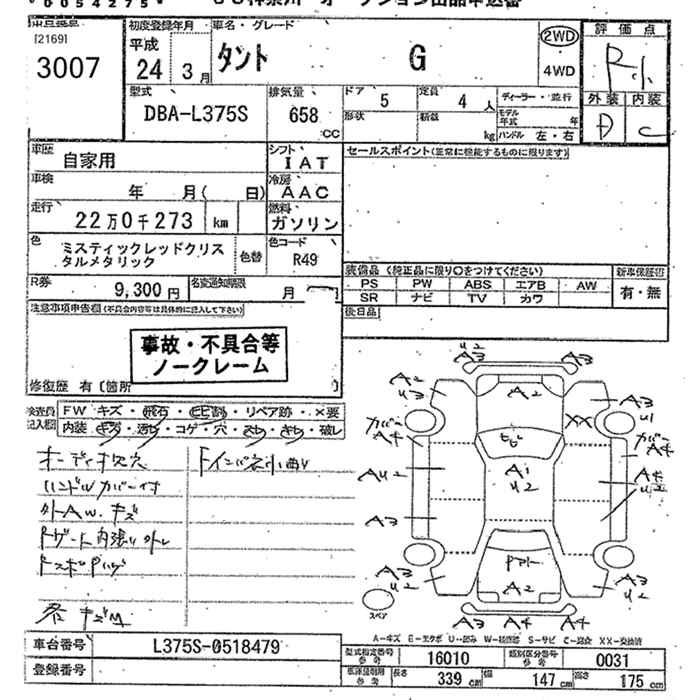 0054275
[2169]
3007
初度登録年月
平成
24 3月
車名・グレード
タント G
2WD
4WD
評価点
外装 内装
D C
型式
DBA-L375S
排気量
658
CC
ドア
5
定員
4人
形状
ディーラー・並行
モデル年式 年
kg ハンドル 左・右
車歴
自家用
シフト
IAT
セールスポイント(正常に機能するものに限ります)
車検
年 月( 日)
冷房
AAC
走行
22万0千273 km
燃料
ガソリン
色
ミスティックレッドクリス
タルメタリック
色替
色コード
R49
装備品 (純正品に限り○をつけてください)
新車保証書
PS PW ABS エアB AW
SR ナビ TV カワ
有・無
R券
9,300円
名変通知期限
月
後日品
注意事項申告欄(不具合内容等は具体的に記入して下さい)
事故・不具合等
ノークレーム
修復歴 有(箇所
検査員
記入欄
FW キズ・飛石・ヒビ割・リペア跡・×要
内装 キズ・汚れ・コゲ・穴・破レ
オーディオ欠穴
ハンドルカバー付
外AW. キズ
各キズM
A2
A3
A3
A2
A3
U2
A3
U1
XX
カバー
A4
カバー
A4
A1
U2
AU2
A4
U2
A3
A3
U2
A2
A3
U2
A3 A4 A4
スペア
A-キズ E-エクボ U-凹み W-補修跡 S-サビ C-腐食 XX-交換済
車台番号
L375S-0518479
登録番号
型式指定番号
参考
16010
類別区分番号
参考
0031
参考
長さ
339cm
幅
147cm
高さ
175cm